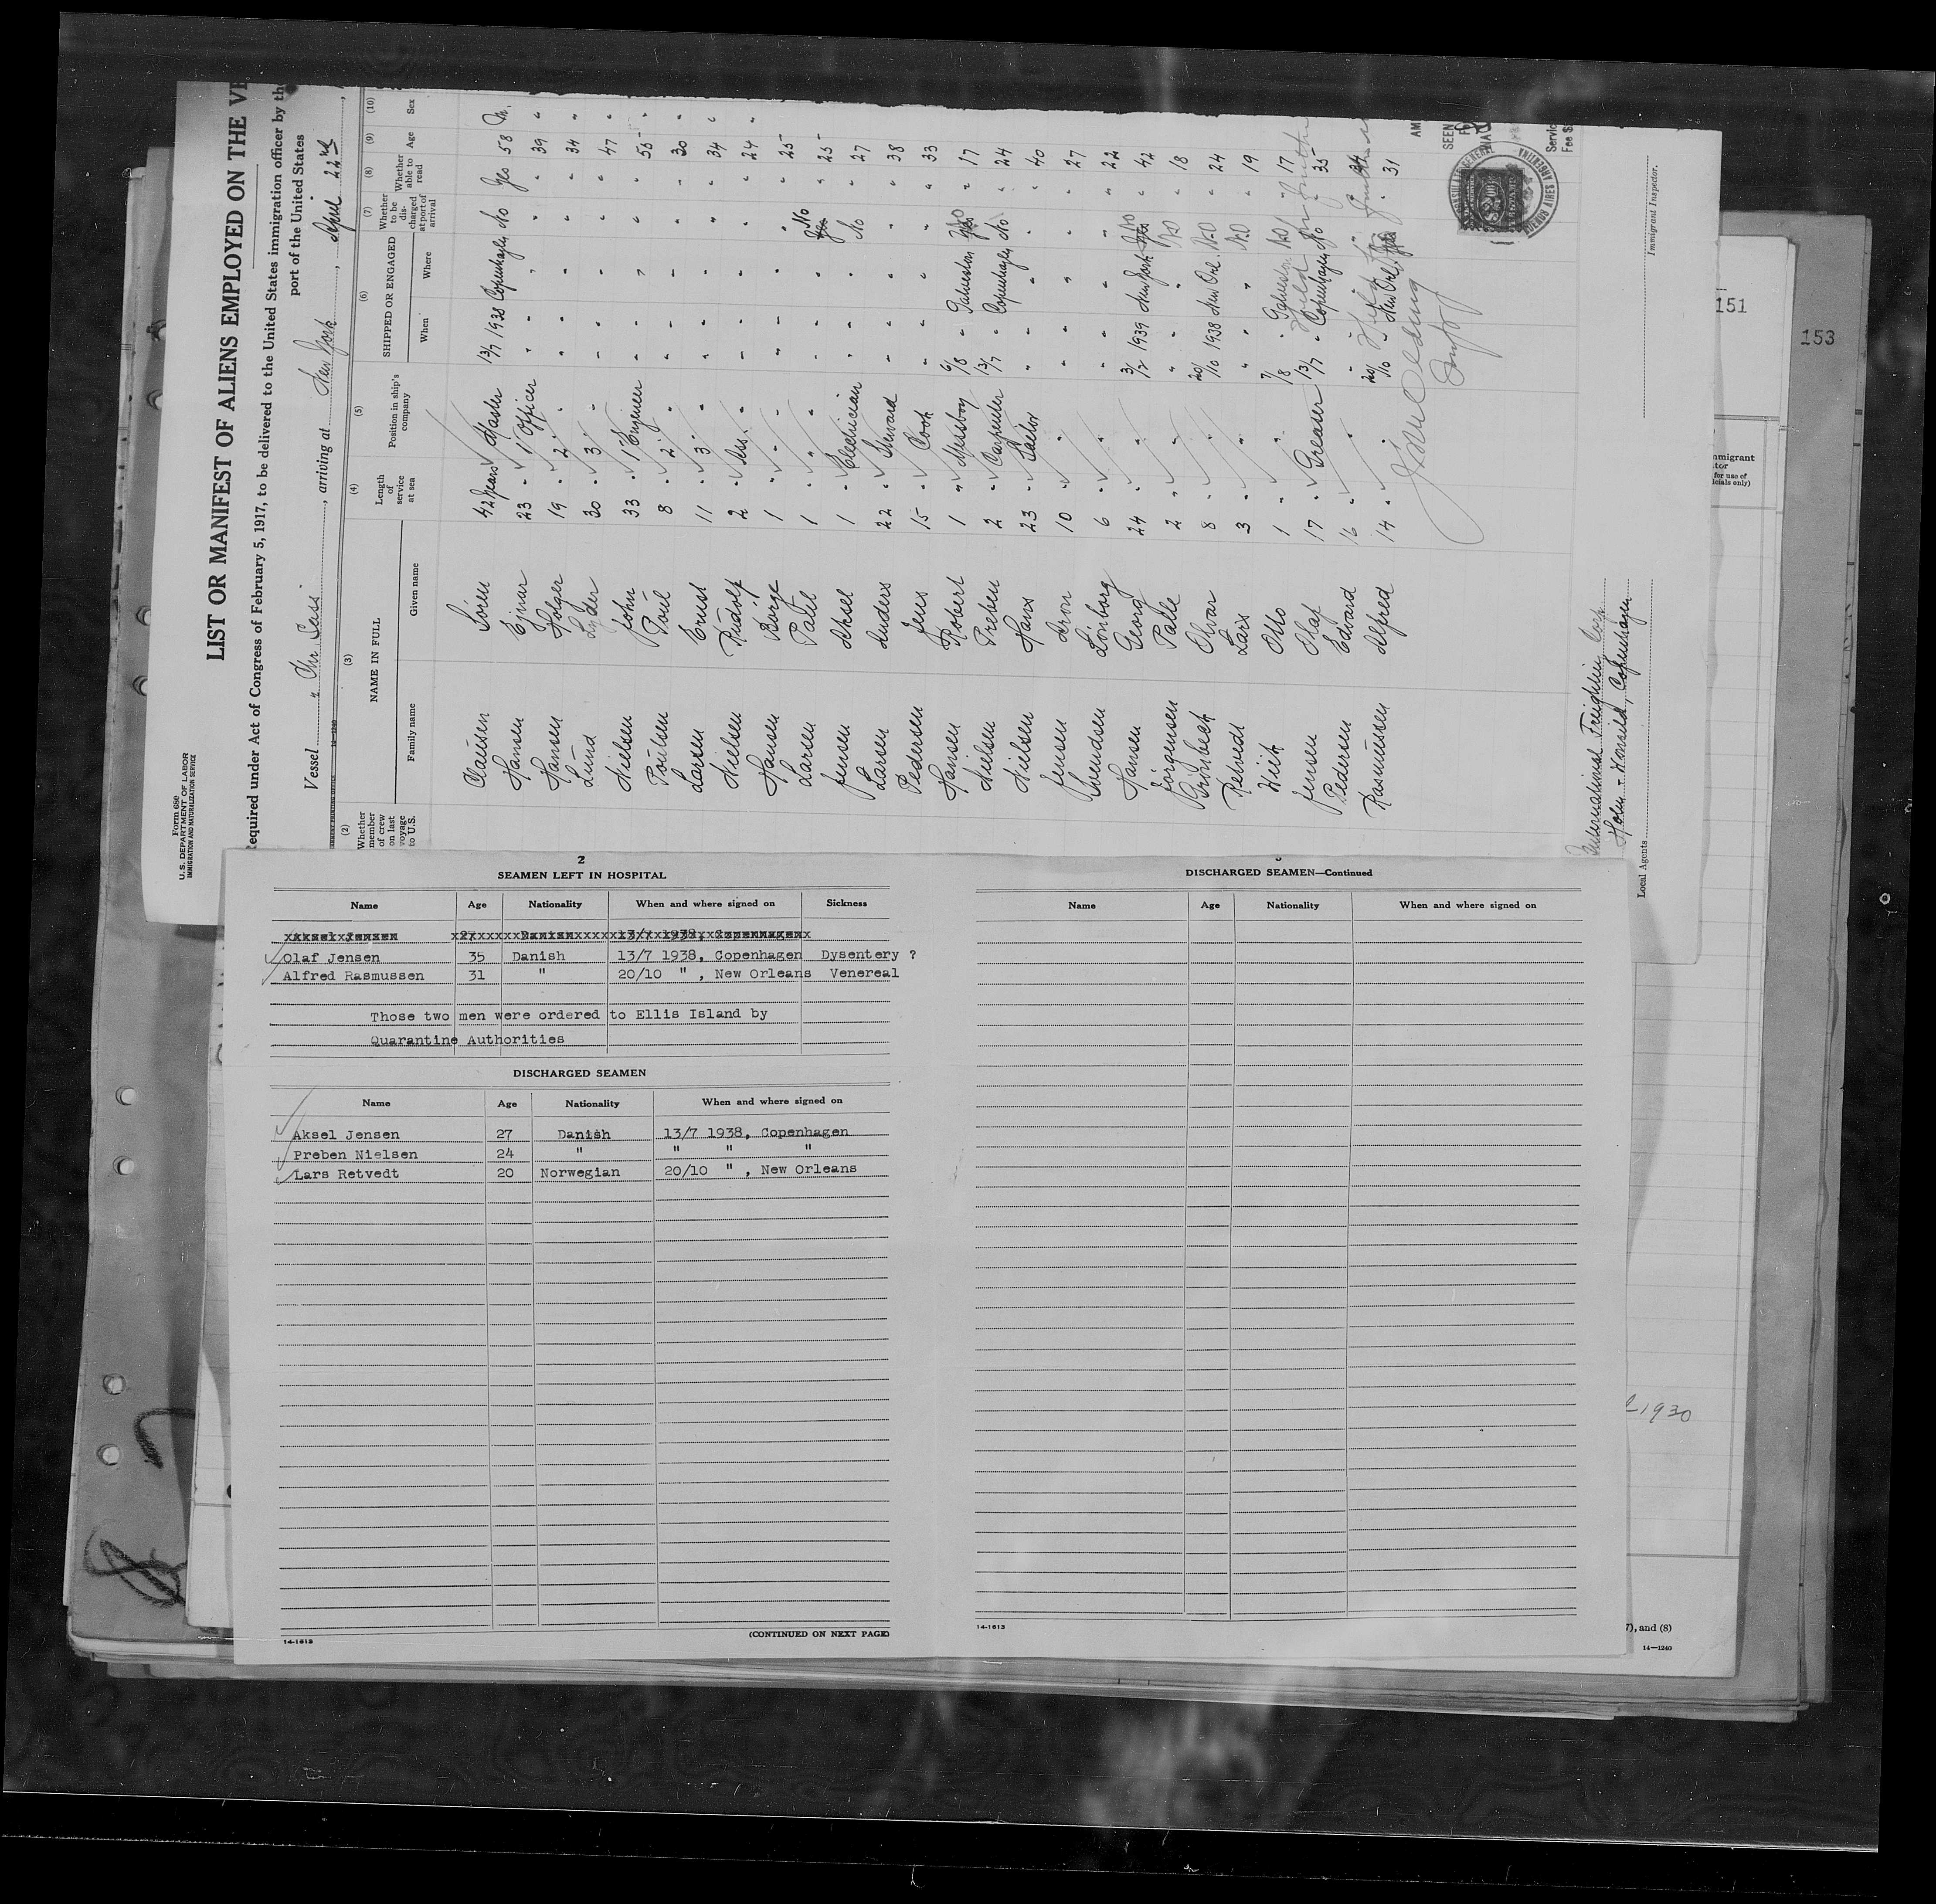 Form 680
U. S. DEPARTMENT OF LABOR
IMMIGRATION AND NATURALIZATION SERVICE
LIST OR MANIFEST OF ALIENS EMPLOYED ON THE VE
Required under Act of Congress of February 5, 1917, to be delivered to the United States immigration officer by the
port of the United States
Vessel " Chr. Sass , arriving at New York , April 22nd ,
(2) (3) (4) (5) (6) (7) (8) (9) (10)
Whether member of crew on last voyage to U. S.
NAME IN FULL
Family name Given name
Length of service at sea
Position in ship's company
SHIPPED OR ENGAGED
When Where
Whether to be discharged at port of arrival
Whether able to read
Age
Sex
Clausen Sören 42 years Master 13/7 1938 Copenhagen No Yes 58 M.
Hansen Ejnar 23 " 1 Officer " " " " " 39 "
Hansen Holger 19 " 2 " " " " " " 34 "
Lund Lyder 30 " 3 " " " " " " 47 "
Nielsen John 33 " 1 Engineer " " " " " 55 "
Poulsen Poul 8 " 2 " " " " " " 30 "
Larsen Ernst 11 " 3 " " " " " " 34 "
Nielsen Rudolf 2 " Ass. " " " " " " 24 "
Hansen Börge 1 " " " " " " " 25
Larsen Paul 1 " " " " " No Yes " 25
Jensen Aksel 1 " Electrician " " " No " 27
Larsen Anders 22 " Steward " " " " 38
Pedersen Jens 15 " Cook " " " " 33
Hansen Robert 1 " Messboy 6/8 " Galveston No Yes " 17
Nielsen Preben 2 " Carpenter 13/7 " Copenhagen No " 24
Nielsen Hans 23 " Sailor " " " " " 40
Jensen Aron 10 " " " " " " " 27
Svendsen 6 " " " " " " " 22
Hansen Georg 24 " " 3/2 1939 New York No Yes " 42
Jörgensen Palle 2 " " " " " No " 18
Grönbech Olvar 8 " " 20/10 1938 New Orl. No " 24
Retvedt Lars 3 " " " " " No " 19
Wiik Otto 1 " " 7/8 " Galveston No " 17
Jensen Olaf 17 " Greaser 13/7 " Copenhagen No " 35
Pedersen Edvard 16 " " " " " " " 34
Rasmussen Alfred 14 " " 20/10 " New Orl. Yes " 31
AM
SEEN
Servic
Fee $
BUENOS AIRES ARGENTINA
International Freighting Corp.
Holm & Wonsild, Copenhagen
Local Agents
Immigrant Inspector.
151
153
mmigrant
tor
for use of
icials only)
1930
7), and (8)
14—1240
2
SEAMEN LEFT IN HOSPITAL
Name Age Nationality When and where signed on Sickness
Aksel Jensen 27 Danish 13/7 1938, Copenhagen
Olaf Jensen 35 Danish 13/7 1938, Copenhagen Dysentery ?
Alfred Rasmussen 31 " 20/10 " , New Orleans Venereal
Those two men were ordered to Ellis Island by
Quarantine Authorities
DISCHARGED SEAMEN
Name Age Nationality When and where signed on
Aksel Jensen 27 Danish 13/7 1938, Copenhagen
Preben Nielsen 24 " " " "
Lars Retvedt 20 Norwegian 20/10 " , New Orleans
14-1613
(CONTINUED ON NEXT PAGE)
DISCHARGED SEAMEN—Continued
Name Age Nationality When and where signed on
14-1613